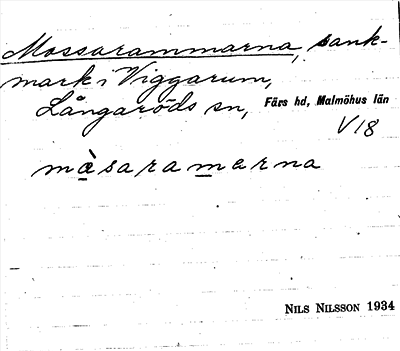 Mossarammarna, sank-
mark i Viggarum,
Långaröds sn, Färs hd, Malmöhus län
V18
mæ̀saramerna
NILS NILSSON 1934